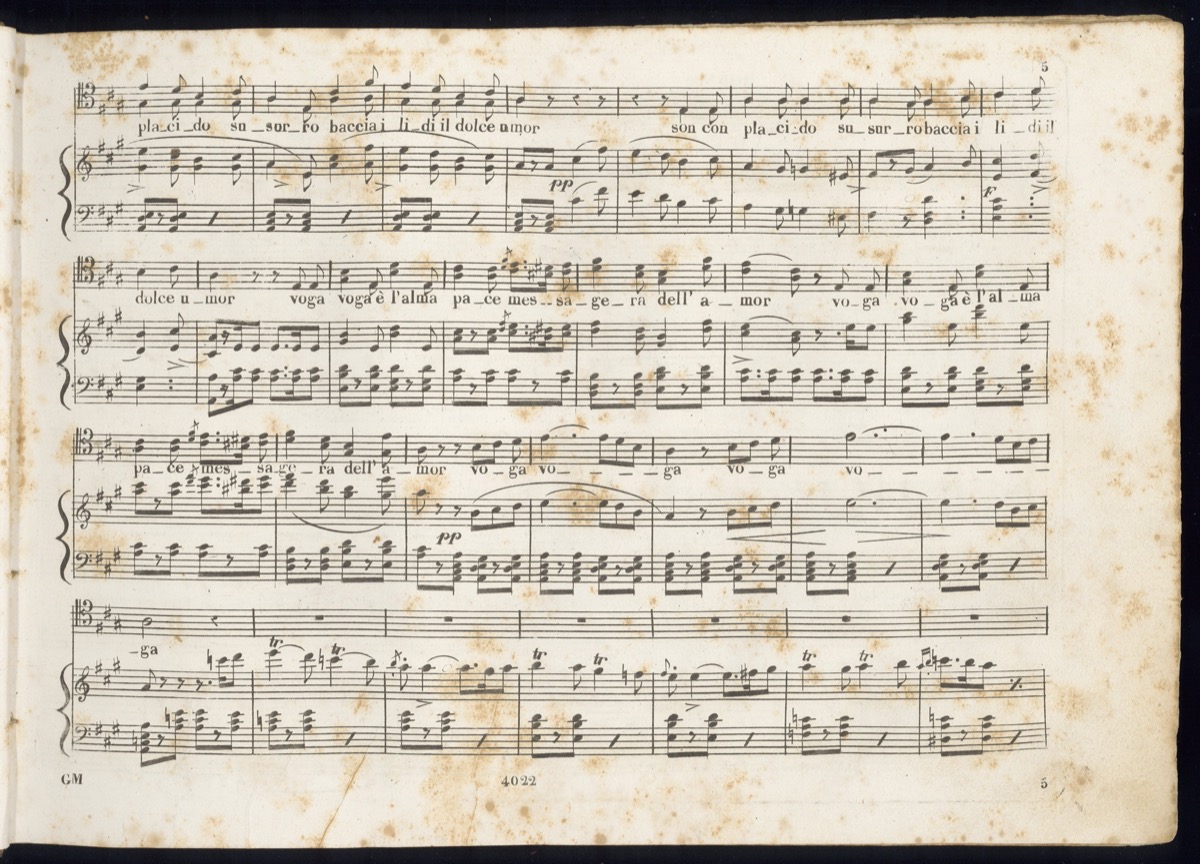 5
pla_ci_do su_sur_ro baccia i li_di il dolce umor son con pla_ci_do su_sur_ro baccia i li_di il
pp
F
dolce u_mor voga voga è l'alma pa_ce mes_sa_ge_ra dell' a_mor vo_ga vo_ga è l'al_ma
pa_ce mes_sa_ge_ra dell' a_mor vo_ga vo_ga vo_ga vo_
pp
_ga
tr tr tr tr tr tr
GM 4022 5